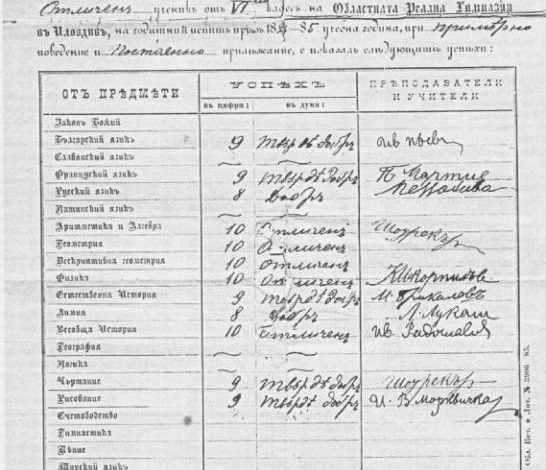 Отличенъ ученикъ отъ VI классъ на Областната Реална Гимназия
въ Пловдивъ, на годишний испитъ прѣзъ 1884—85 учебна година, при примѣрно
поведение и постоянно прилѣжание, е показалъ слѣдующитѣ успѣхи:
ОТЪ ПРѢДМѢТИ УСПѢХЪ ПРѢПОДАВАТЕЛИ И УЧИТЕЛИ
въ цифри: въ думи:
Законъ Божий
Българский языкъ 9 твърдѣ добръ
Славянский языкъ
Французский языкъ 9 твърдѣ добръ
Русский языкъ 8 добръ
Латинский языкъ
Аритметика и Алгебра 10 Отличенъ Шоурекъ
Геометрия 10 Отличенъ
Дескриптивна геометрия 10 отличенъ
Физика 10 отличенъ
Естественна История 9 твърдѣ добръ
Химия 8 добръ Л. Лукаш
Всеобща История 10 Отличенъ Ив. Радославов
География
Логика
Чъртание 9 твърдѣ добръ Шоурекъ
Рисование 9 твърдѣ добръ И. В. Мърквичка
Счетоводство
Гимнастика
Пѣние
Обл. Печ. и Лит. № 3906 85.